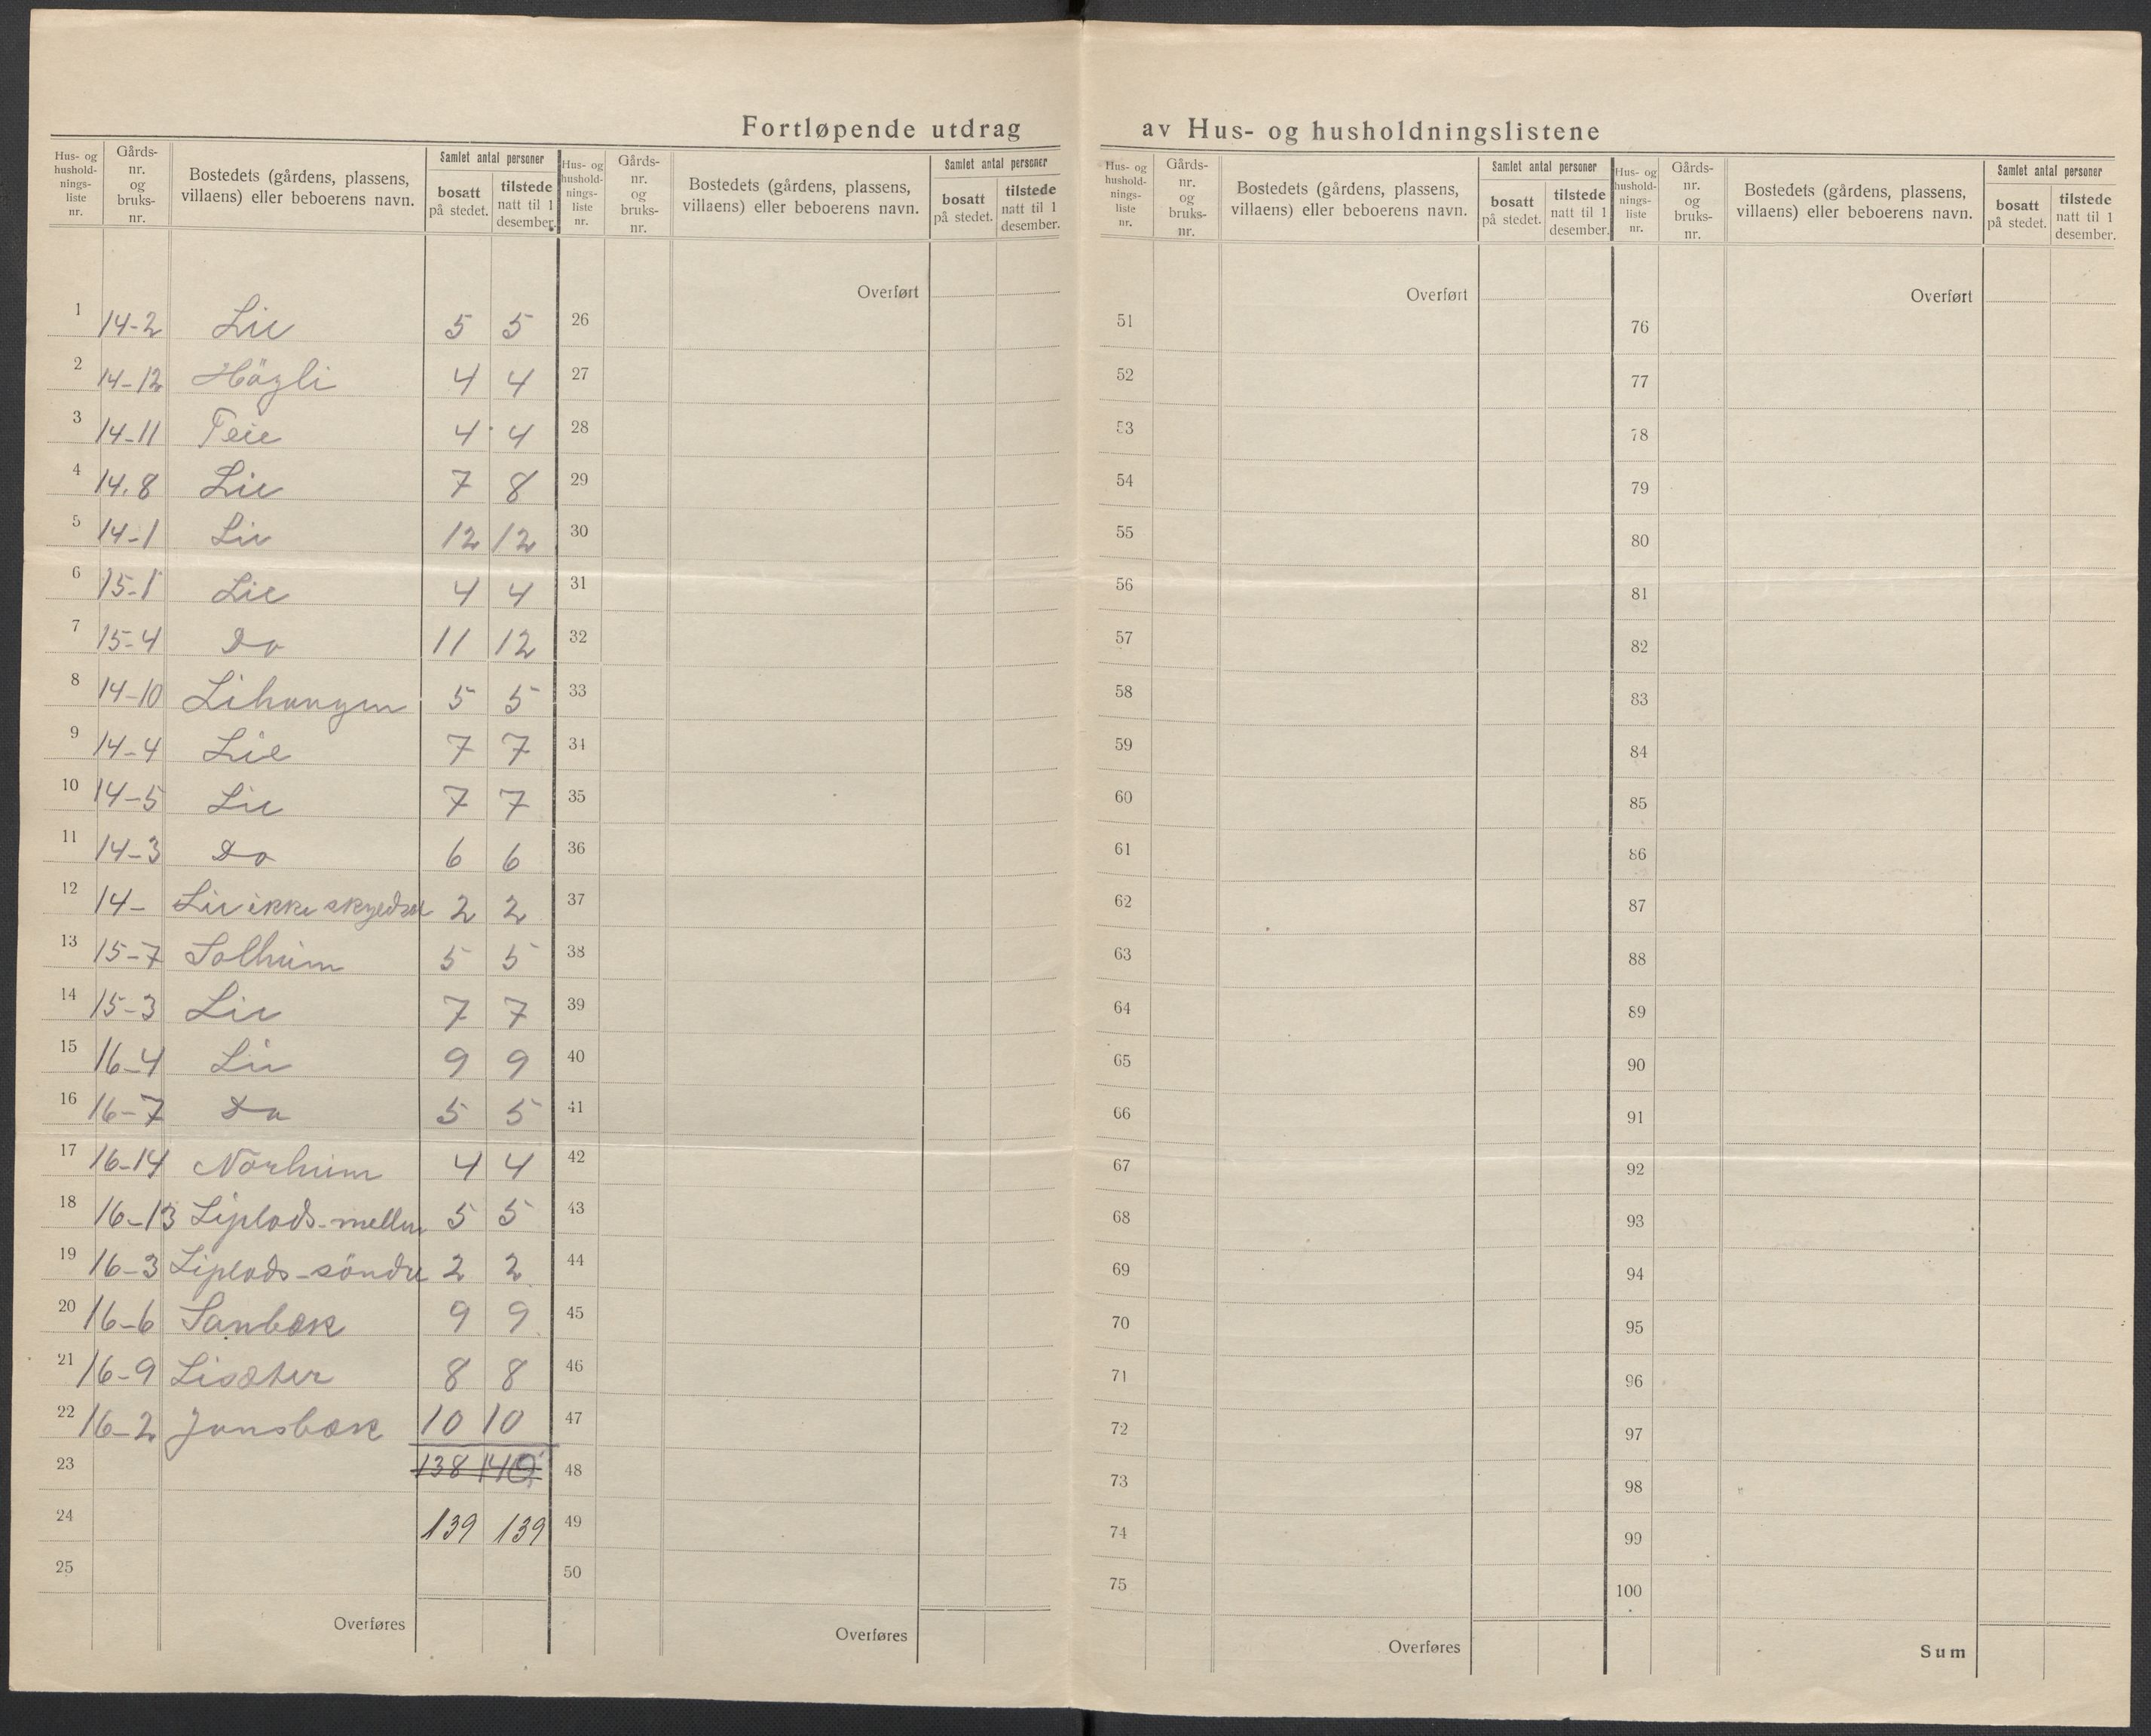 Fortløpende utdrag av Hus- og husholdningslistene
Hus- og hushold- nings- liste nr. | Gårds- nr. og bruks- nr. | Bostedets (gårdens, plassens, villaens) eller beboerens navn. | Samlet antal personer | bosatt på stedet. | tilstede natt til 1 desember.
1 14-2 Lie 5 5
2 14-12 Högli 4 4
3 14-11 Teie 4 4
4 14.8 Lie 7 8
5 14-1 Lie 12 12
6 15-1 Lie 4 4
7 15-4 Do 11 12
8 14-10 Lihaugen 5 5
9 14-4 Lie 7 7
10 14-5 Lie 7 7
11 14-3 Do 6 6
12 14- Lie ikke 2 2
13 15-7 Solheim 5 5
14 15-3 Lie 7 7
15 16-4 Lie 9 9
16 16-7 Do 5 5
17 16-14 Nörheim 4 4
18 16-13 Liplads-mellem 5 5
19 16-3 Liplads-söndre 2 2
20 16-6 Sanbæk 9 9
21 16-9 Lisæter 8 8
22 16-2 Jansbæk 10 10
23 138 140
24 139 139
25
Overføres
Hus- og hushold- nings- liste nr. | Gårds- nr. og bruks- nr. | Bostedets (gårdens, plassens, villaens) eller beboerens navn. | Samlet antal personer | bosatt på stedet. | tilstede natt til 1 desember.
Overført
26
27
28
29
30
31
32
33
34
35
36
37
38
39
40
41
42
43
44
45
46
47
48
49
50
Overføres
Hus- og hushold- nings- liste nr. | Gårds- nr. og bruks- nr. | Bostedets (gårdens, plassens, villaens) eller beboerens navn. | Samlet antal personer | bosatt på stedet. | tilstede natt til 1 desember.
Overført
51
52
53
54
55
56
57
58
59
60
61
62
63
64
65
66
67
68
69
70
71
72
73
74
75
Overføres
Hus- og hushold- nings- liste nr. | Gårds- nr. og bruks- nr. | Bostedets (gårdens, plassens, villaens) eller beboerens navn. | Samlet antal personer | bosatt på stedet. | tilstede natt til 1 desember.
Overført
76
77
78
79
80
81
82
83
84
85
86
87
88
89
90
91
92
93
94
95
96
97
98
99
100
Sum